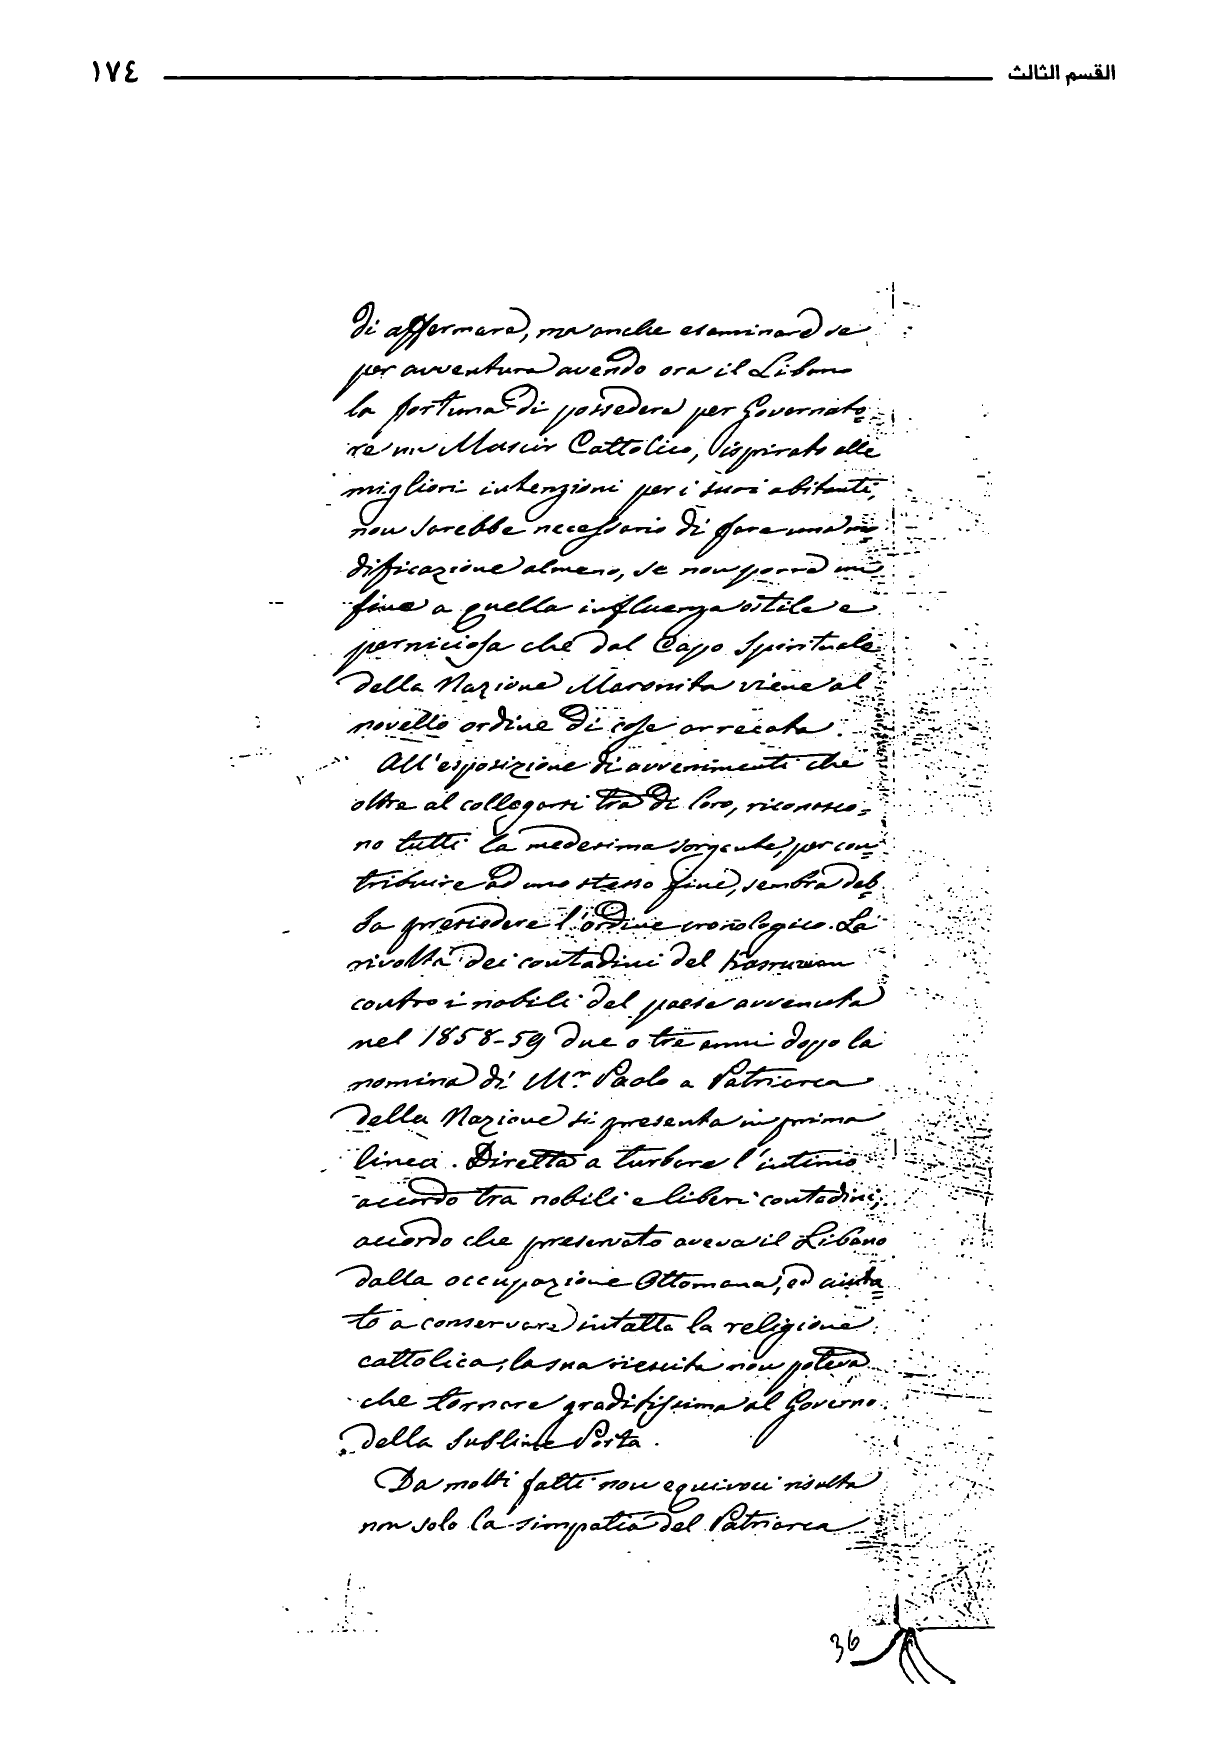 القسم الثالث ١٧٤
di affermare, ma anche esaminare se
per avventura avendo ora il Libano
la fortuna di possedere per Governato=
re un Muscir Cattolico, ispirato alle
migliori intenzioni per i suoi abitanti,
non sarebbe necessario di fare una mo=
dificazione almeno, se non porre un
fine a quella influenza ostile e
perniciosa che dal Capo Spirituale
della Nazione Maronita viene al
novello ordine di cose arrecata.
All'esposizione di avvenimenti che
oltre al collegarsi tra di loro, riconosco=
no tutti la medesima sorgente, per con=
tribuire ad uno stesso fine, sembra deb=
ba presiedere l'ordine cronologico. La
rivolta dei contadini del Kasruwan
contro i nobili del paese avvenuta
nel 1858-59 due o tre anni dopo la
nomina di Mr Paolo a Patriarca
della Nazione si presenta in prima
linea. Diretta a turbare l'intimo
accordo tra nobili e liberi contadini;
accordo che preservato aveva il Libano
dalla occupazione Ottomana, ed aiuta=
to a conservare intatta la religione
cattolica, la sua riescita non poteva
che tornare graditissima al Governo
della Sublime Porta.
Da molti fatti non equivoci risulta
non solo la simpatia del Patriarca
36